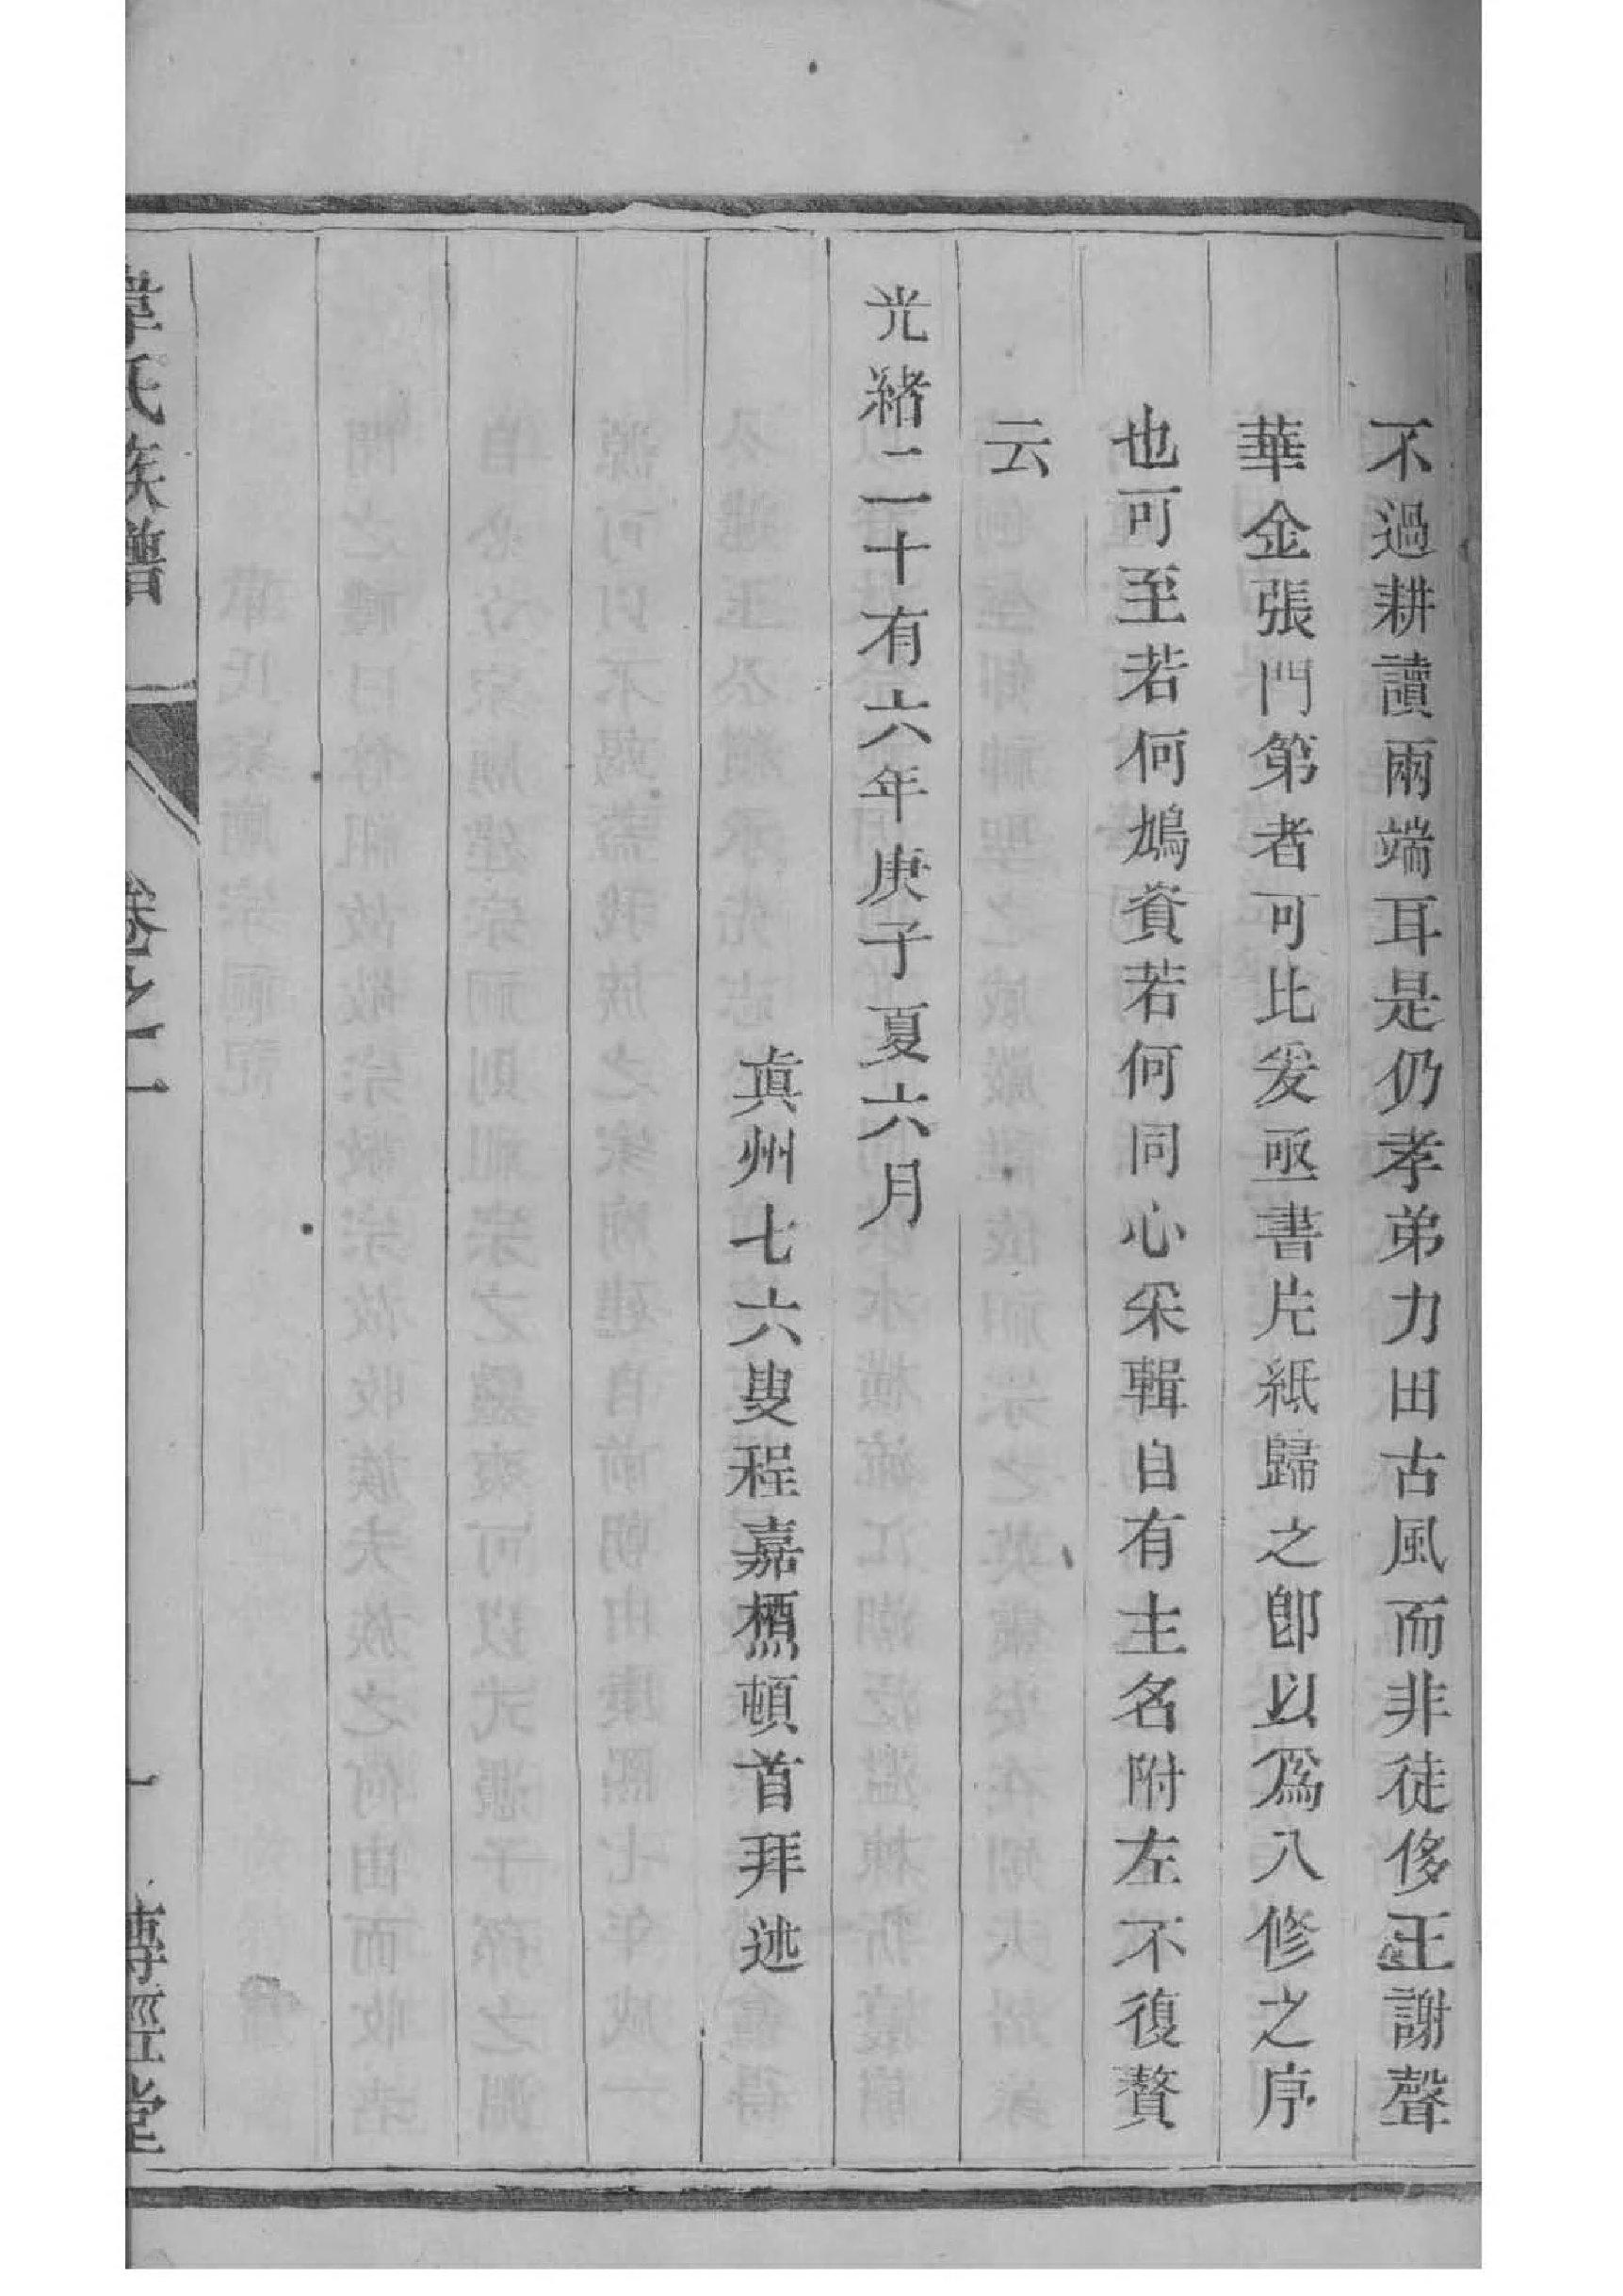 不過耕讀兩端耳是仍孝弟力田古風而非徒侈王謝聲
華金張門第者可比爰亟書片紙歸之卽以爲八修之序
也可至若何鳩資若何同心采輯自有主名附左不復贅
云
光緒二十有六年庚子夏六月
眞州七六叟程嘉槱頓首拜述
韋氏族譜
卷之一
一
傳經堂